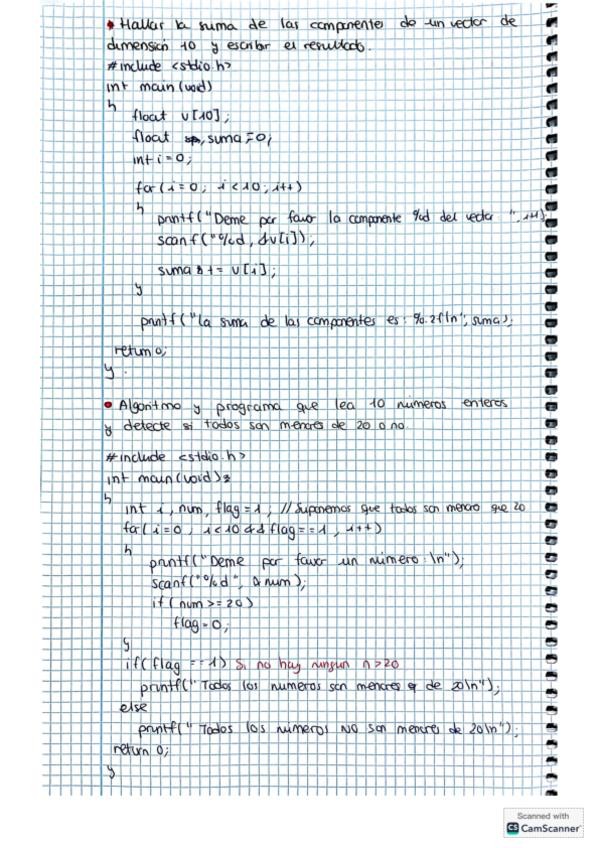 • Hallar la suma de las componentes de un vector de
dimensión 10 y escribir el resultado.
#include <stdio.h>
int main(void)
{
float v[10];
float , suma=0;
int i=0;
for(i=0; i<10; i++)
{
printf("Deme por favor la componente %d del vector ", i+1);
scanf("%d, &v[i]);
suma += v[i];
}
printf("la suma de las componentes es: %.2f\n", suma);
return 0;
}
• Algoritmo y programa que lea 10 números enteros
y detecte si todos son menores de 20 o no.
#include <stdio.h>
int main(void)
{
int i, num, flag=1; // Suponemos que todos son menro que 20
for(i=0, i<10 && flag==1, i++)
{
printf("Deme por favor un número: \n");
scanf("%d", &num);
if(num>=20)
flag=0;
}
if(flag ==1) Si no hay ningun n>20
printf("Todos los numeros son menores de 20\n");
else
printf("Todos los números NO son menores de 20\n");
return 0;
}
Scanned with
CS CamScanner